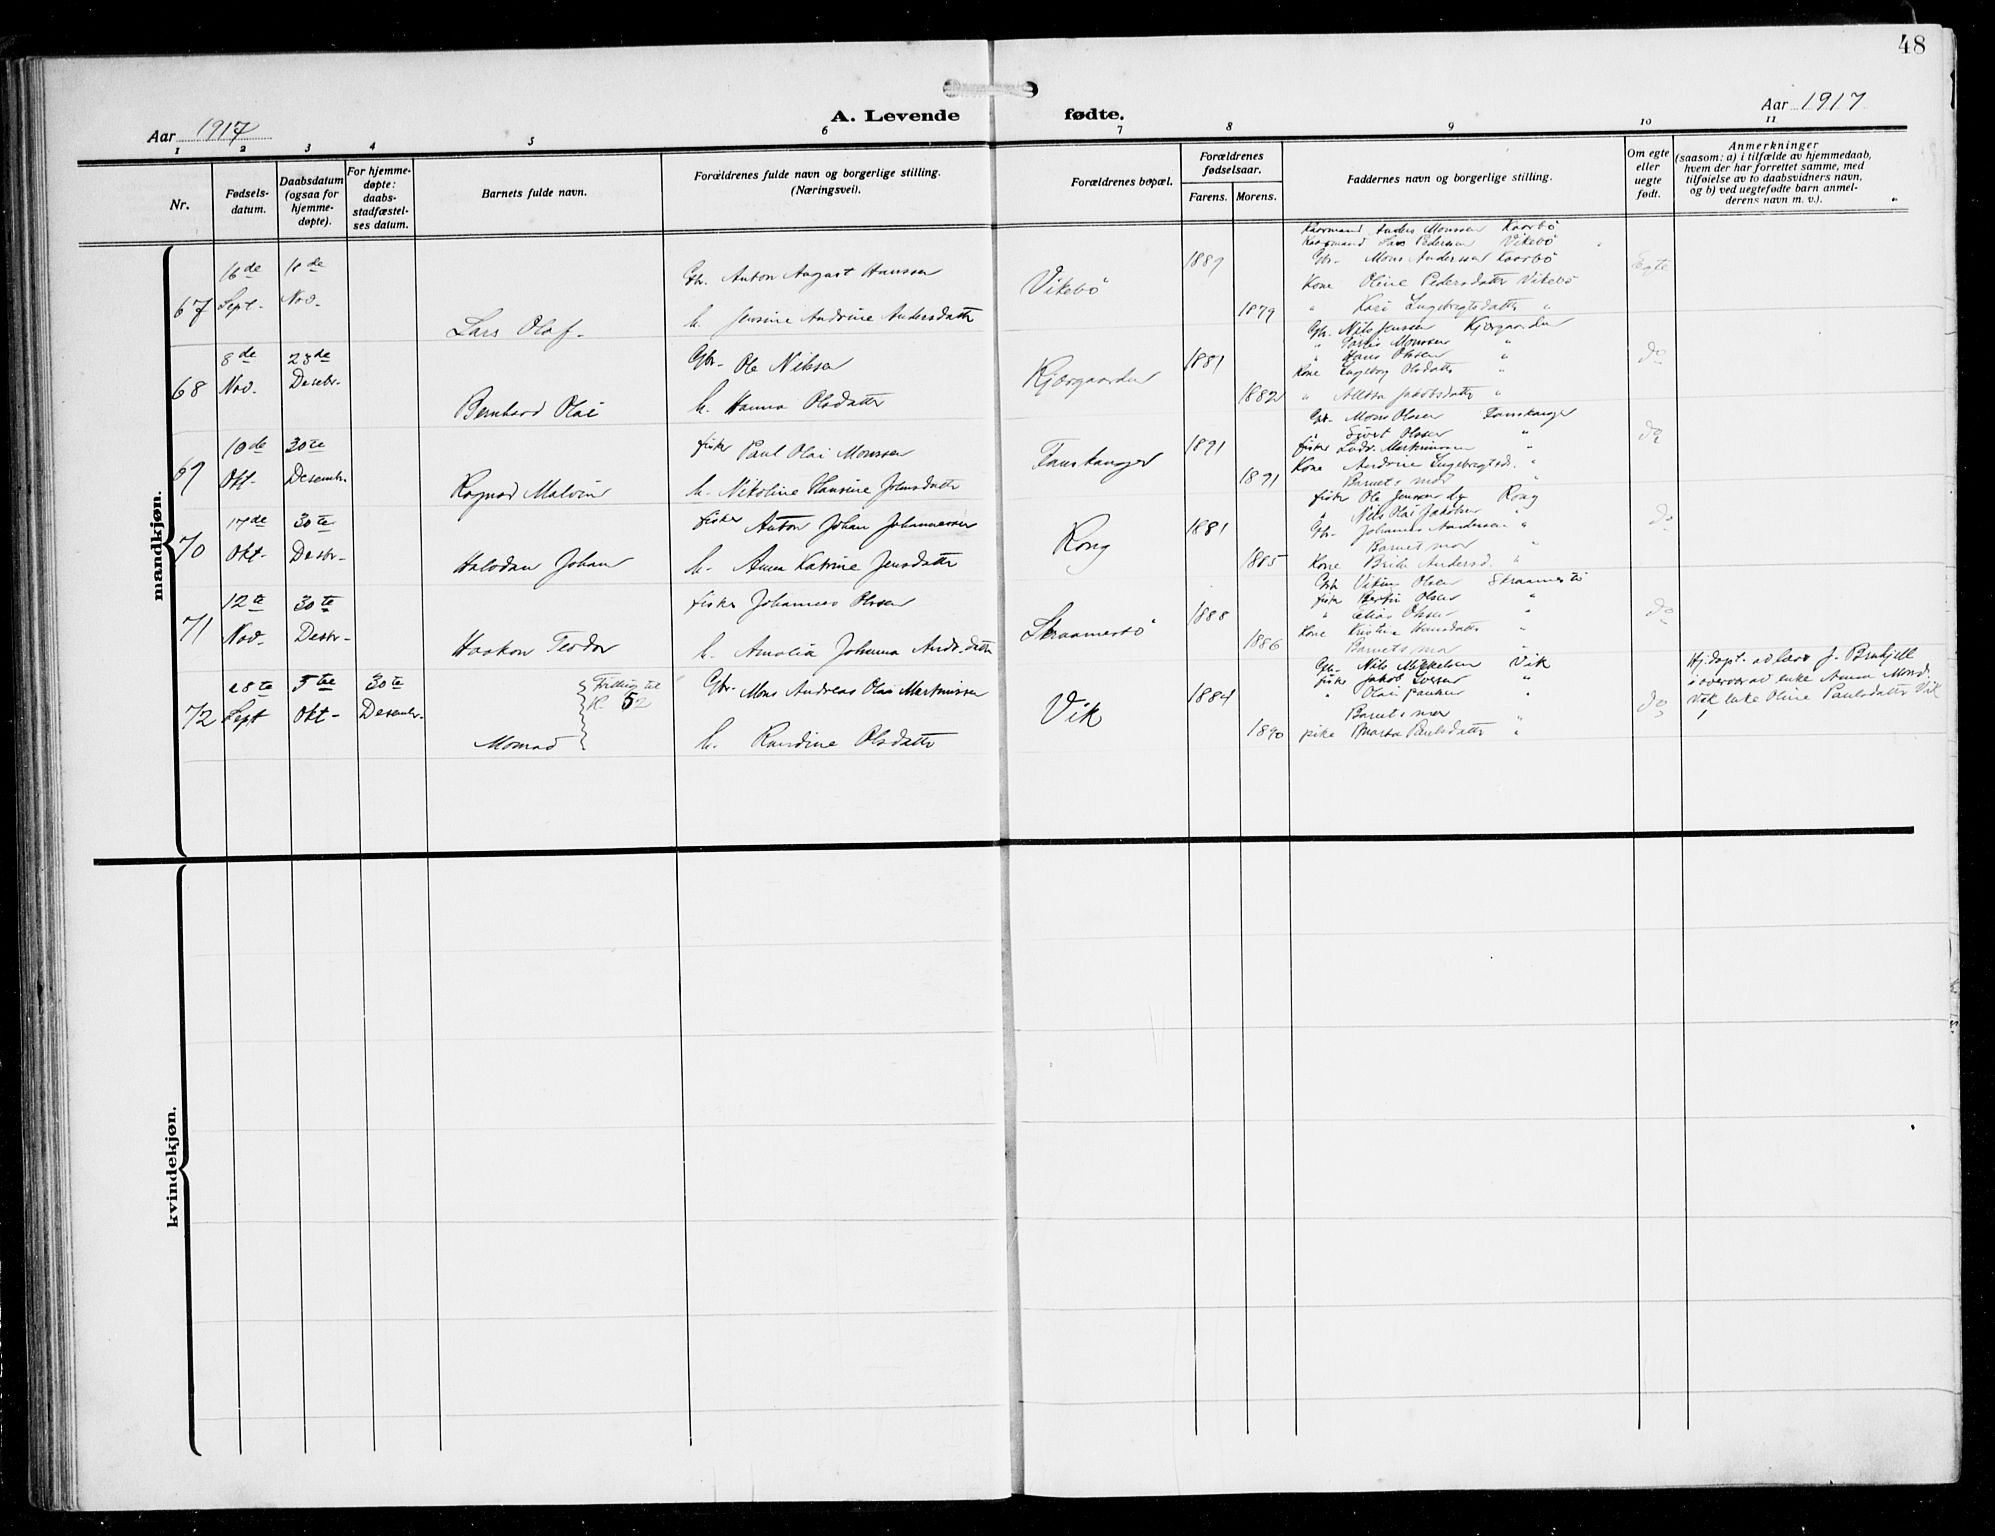 48
Aar 1917
A. Levende fødte.
Aar 1917
1 2 3 4 5 6 7 8 9 10 11
Nr.
Fødsels-
datum.
Daabsdatum
(ogsaa for
hjemme-
døpte).
For hjemme-
døpte:
daabs-
stadfæstel-
ses datum.
Barnets fulde navn.
Forældrenes fulde navn og borgerlige stilling.
(Næringsvei).
Forældrenes bopæl.
Forældrenes
fødselsaar.
Farens. Morens.
Faddernes navn og borgerlige stilling.
Om egte
eller
uegte
født.
Anmerkninger
(saasom: a) i tilfælde av hjemmedaab,
hvem der har forrettet samme, med
tilføielse av to daabsvidners navn,
og b) ved uegtefødte barn anmel-
derens navn m. v.).
mandkjøn.
67
16de
Sept.
Nov.
Lars Olaf.
Gbr. Anton August Hanssen
h. Jensine Andrine Andersdattr
Vikebö
1889
1879
Kaarmand Anders Monssen Kaarbö
Kaarmand Lars Pedersen Vikebö
Gbr. Mons Anderssen Kaarbö
Kone Oline Pedersdattr Vikebö
" Kari Ingebregtsdattr "
Egte
68
8de
Nov.
23de
Desbr.
Bernhard Olai
Gbr. Ole Nilsen
h. Hanna Olsdattr
Kjærgaarden
1881
1882
Gbr. Nils Jenssen Kjærgaarden
" Monssen "
" Hans Olssen "
Kone Ingeborg Olsdattr "
" Jakobsdattr "
do
69
10de
Okt.
30te
Desembr.
Ragnad Malvin
fisker Paul Olai Monssen
h. Nikoline Hansine Johnsdattr
Fanskanger
1891
1891
Gbr. Mons Olsen Fanskanger
" Sivert Olssen "
fisker Ludv. Martinussen "
Kone Andrine Ingebregtsd. "
Barnets mor "
do
70
17de
Okt.
30te
Desbr.
Halvdan Johan
fisker Anton Johan Johannessen
h. Anna Katrine Jensdattr
Rong
1881
1885
fisker Ole Jenssen Rong
" Nils Olai Jakobsen "
Gbr. Johannes Anderssen "
Barnets mor "
Kone Brite Andersd. "
do
71
12te
Nov.
30te
Desbr.
Haakon Teodor
fisker Johannes Olssen
h. Amalia Johanna Andr.dattr
Straamesbö
1888
1886
Gbr. Olsen Straamesbö
fisker Bertin Olsen "
" Elias Olssen "
Kone Kristine Hansdattr "
Barnets mor "
do
72
28te
Sept
5te
Okt.
30te
Desembr.
Monrad
Tvilling til
K 52
Gbr. Mons Andreas Olai Martinussen
h. Randine Olsdattr
Vik
1884
1890
Gbr. Nils Mikkelsen Vik
fisker Jakob Iversen "
" Olai "
Barnets mor
pike Marta Paulsdattr "
do
Hj.døpt. av lærer J. Brekjell
i overvær av enke Anna Monsd.
Vik enke Oline Paulsdattr Vik
kvindekjøn.